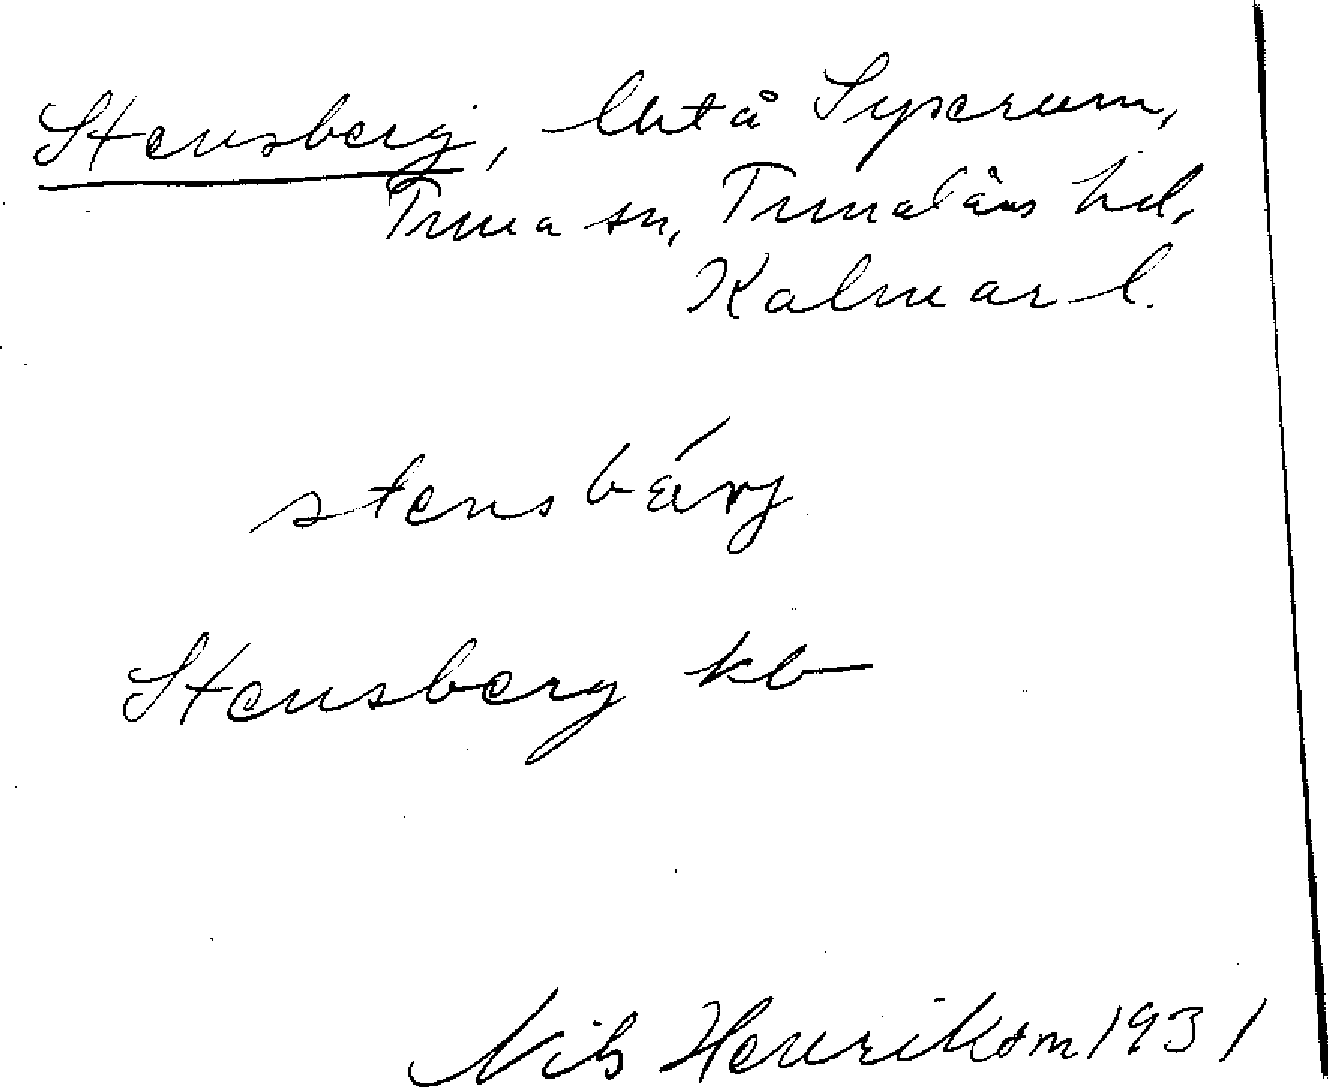 Stensberg, lht å Syserum,
Tuna sn, Tunaläns hd,
Kalmar l.
stensbä́rj
Stensberg kb
Nils Henrikson 1931